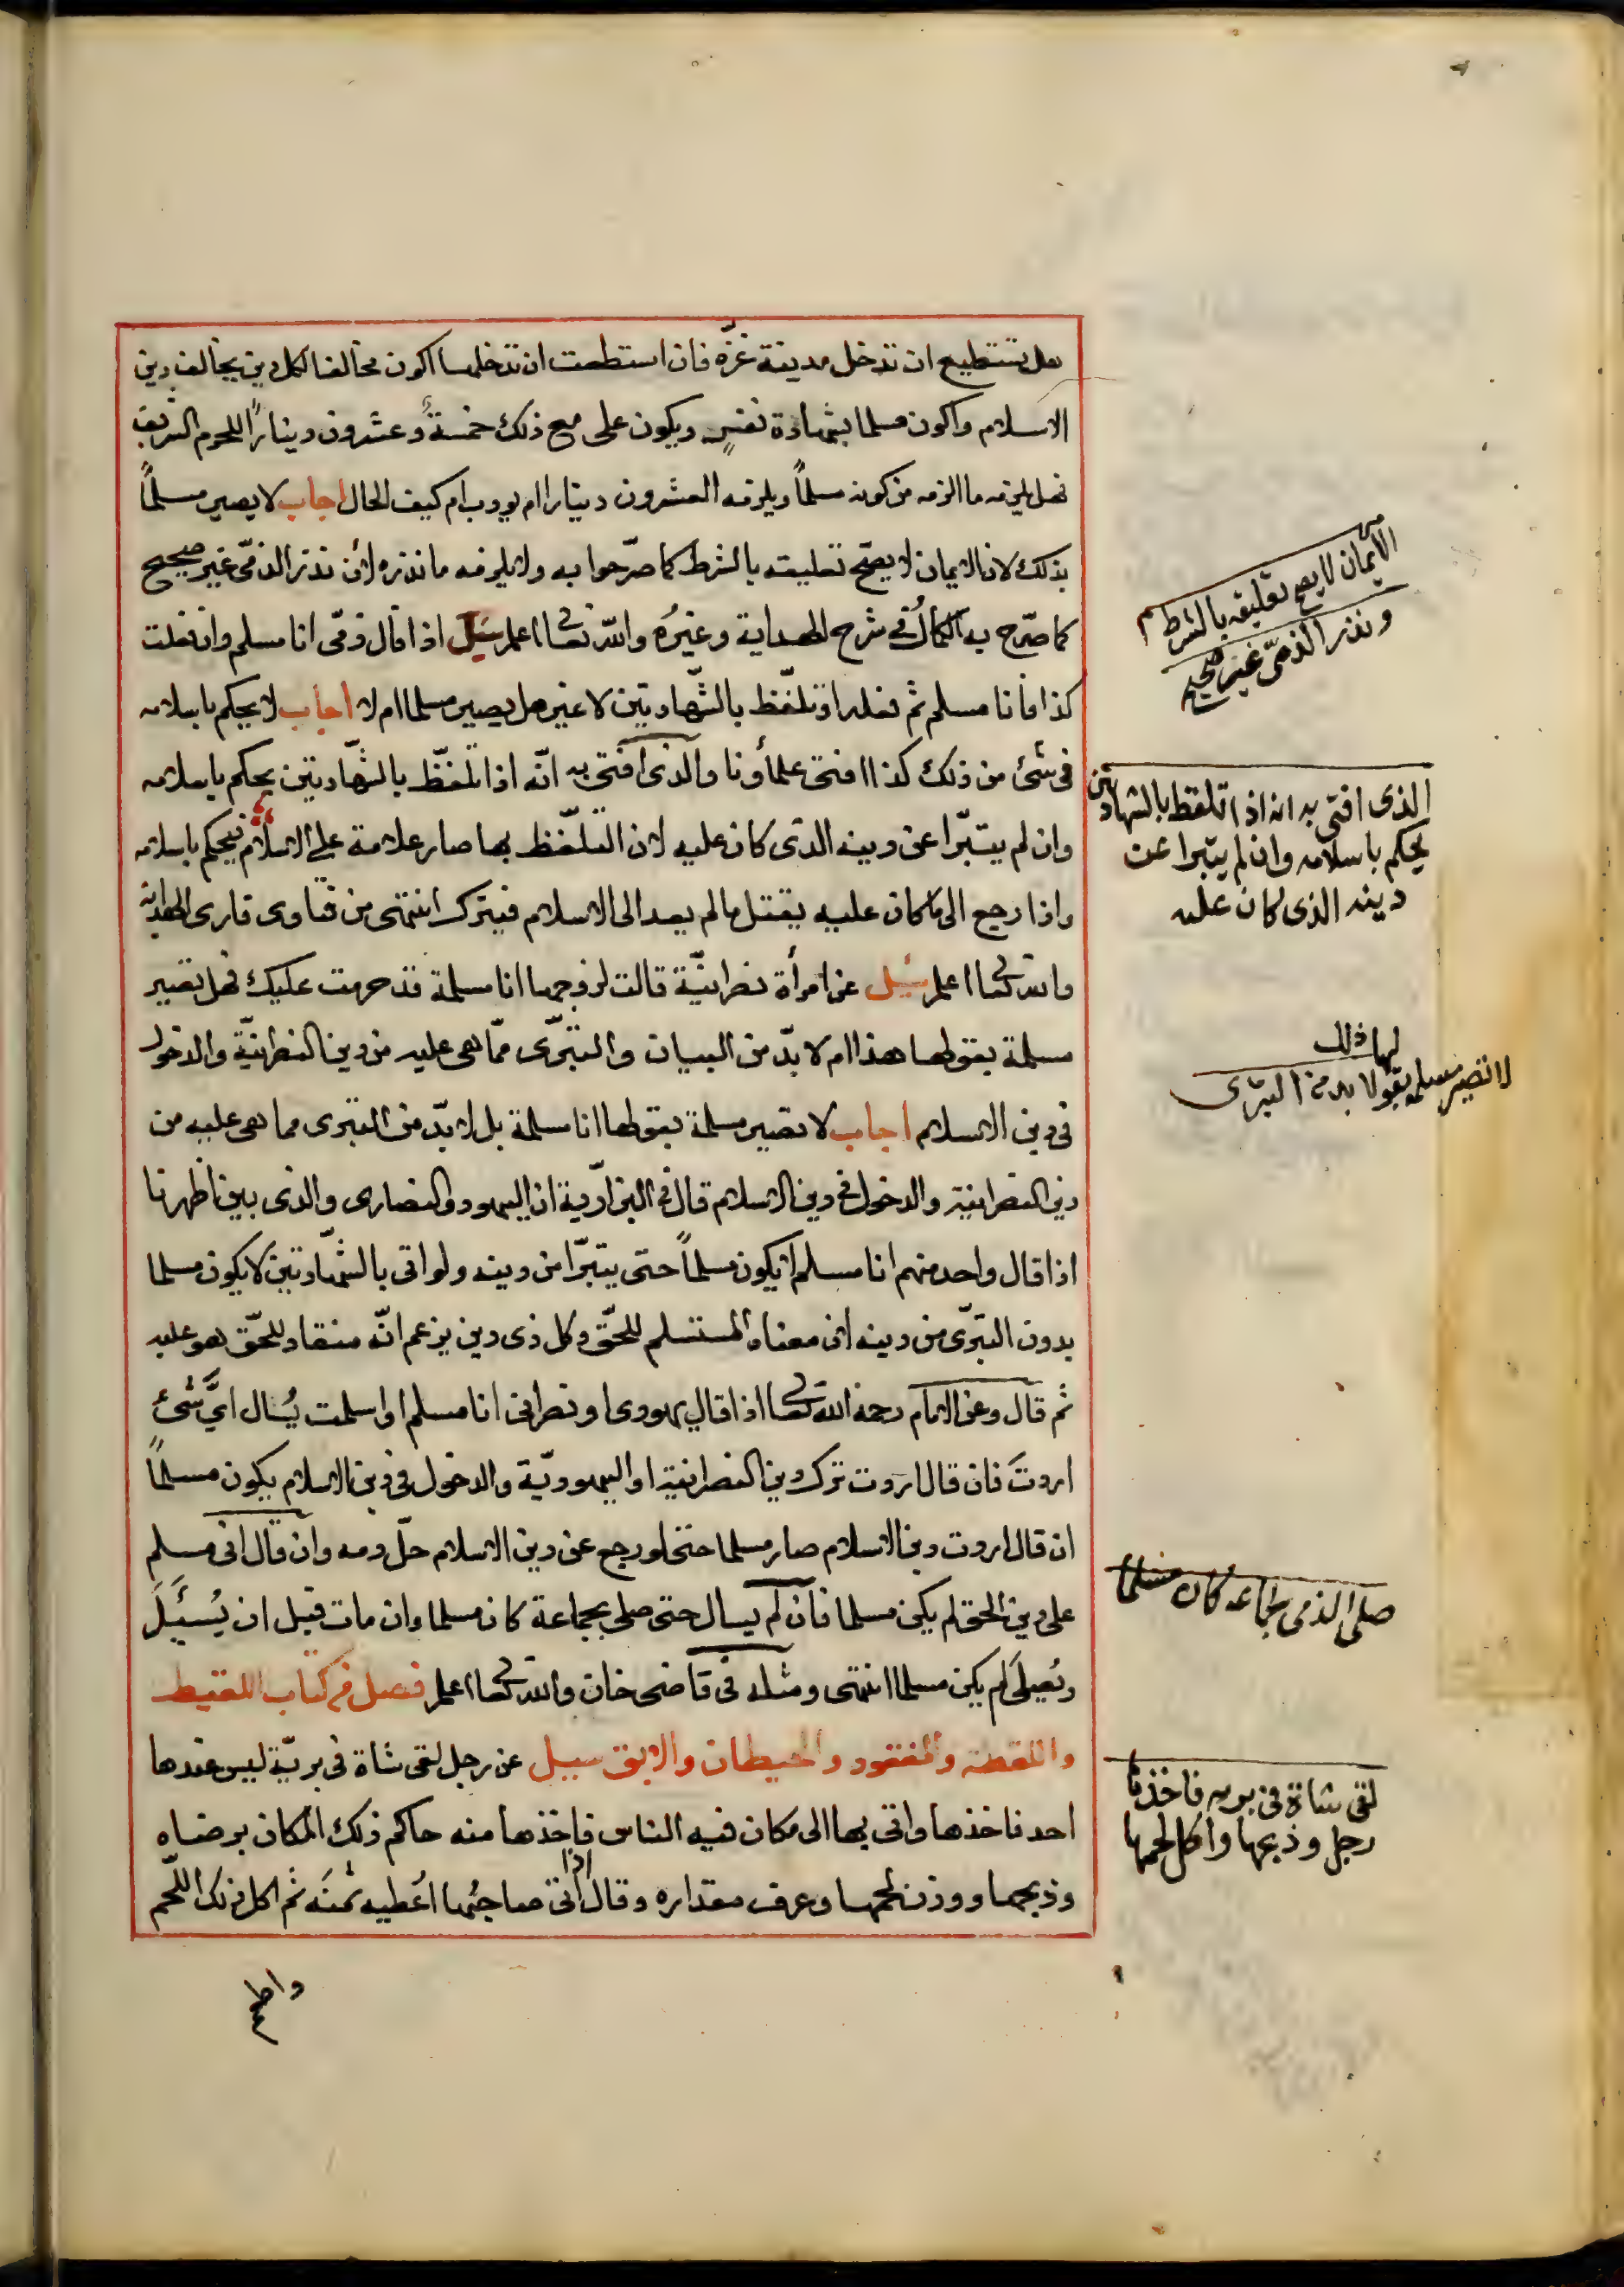 هل يستطيع ان تدخل مدينة غزّه فان استطعت ان تدخلها اكون مخالفا لكل دين يخالف دين
الاسلام واكون مسلما بشهادة نفسٍ ويكون على مع ذلك خمسةٌ وعشرون دينارًا للحرم الشريف
فهل يلزمه ما الزمه من كونه مسلماً ويلزمه العشرون دينارا ام يودب ام كيف الحال اجاب لا يصير مسلماً
بذلك لان الايمان لا يصحّ تعليقه بالشرط كما صرّحوا به ولا يلزمه ما نذره لان نذر الذمّى غير صحيح
كما صرّح به الكمال فى شرح الهداية وغيرُه والله تعالى اعلم سئل اذا قال ذمّى انا مسلم وان فعلت
كذا فانا مسلم ثم فعله او تلفّظ بالشّهادتين لا غير هل يصير مسلما ام لا اجاب لا يحكم باسلامه
فى شئ من ذلك كذا افتى علمأونا والذى افتى به انّه اذا تلفّظ بالشّهادتين يحكم باسلامه
وان لم يتبرّا عن دينه الذى كان عليه لان التلفّظ بها صار علامة على الاسلام فيحكم باسلامه
واذا رجع الى ما كان عليه يقتل ما لم يعد الى الاسلام فيترك انتهى من فتاوى قارى الهداية
والله تعالى اعلم سئل عن امرأة نصرانيّة قالت لزوجها انا مسلمة قد حرمت عليك فهل تصير
مسلمة بقولها هذا ام لا بدّ من البيان والتبرّى ممّا هى عليه من دين النصرانيّة والدخول
فى دين الاسلام اجاب لا تصير مسلمة بقولها انا مسلمة بل لا بدّ من التبرى مما هى عليه من
دين النصرانية والدخول فى دين الاسلام قال فى البزازيّة ان اليهود والنصارى والذى بين اظهرنا
اذا قال واحد منهم انا مسلم لا يكون مسلماً حتى يتبرّا من دينه ولو اتى بالشّهادتين لا يكون مسلما
بدون التبرّى من دينه لان معناه المستسلم للحقّ وكل ذى دين يزعم انّه منقاد للحقّ هو عليه
ثم قال وعن الامام رحمة الله تعالى اذا قال يهودى او نصرانى انا مسلم او اسلمت يُسال اىَّ شئ
اردتَ فان قال اردت ترك دين النصرانية او اليهوديّة والدخول فى دين الاسلام يكون مسلماً
ان قال اردت دين الاسلام صار مسلما حتى لو رجع عن دين الاسلام حلّ دمه وان قال انى مسلم
على دين الحق لم يكن مسلما فان لم يسال حتى صلى بجماعة كان مسلما وان مات قبل ان يُسئَلَ
ويُصلَى لم يكن مسلما انتهى ومثله فى قاضى خان والله تعالى اعلم فصل فى كتاب اللقيط
واللقطة والمفقود والحيطان والابق سيل عن رجل لقى شاة فى بريّة ليس عندها
احد فاخذها واتى بها الى مكان فيه الناس فاخذها منه حاكم ذلك المكان برضاه
وذبحها ووزن لحمها وعرف مقداره وقال اذا اتى صاحبُها اُعطيه ثمنَه ثم اكل ذلك اللّحم
الايمان لا يصح تعليقه بالشرط
ونذر الذمّى غير صحيح
الذى افتى به انه اذا تلفظ بالشهادتين
يحكم باسلامه وان لم يتبرا عن
دينه الذى كان عليه
لا تصير مسلمة بقولها ذلك
لا بد من التبرّى
صلى الذمى بجماعة كان مسلما
لقى شاة فى بريه فاخذها
رجل وذبحها واكل لحمها